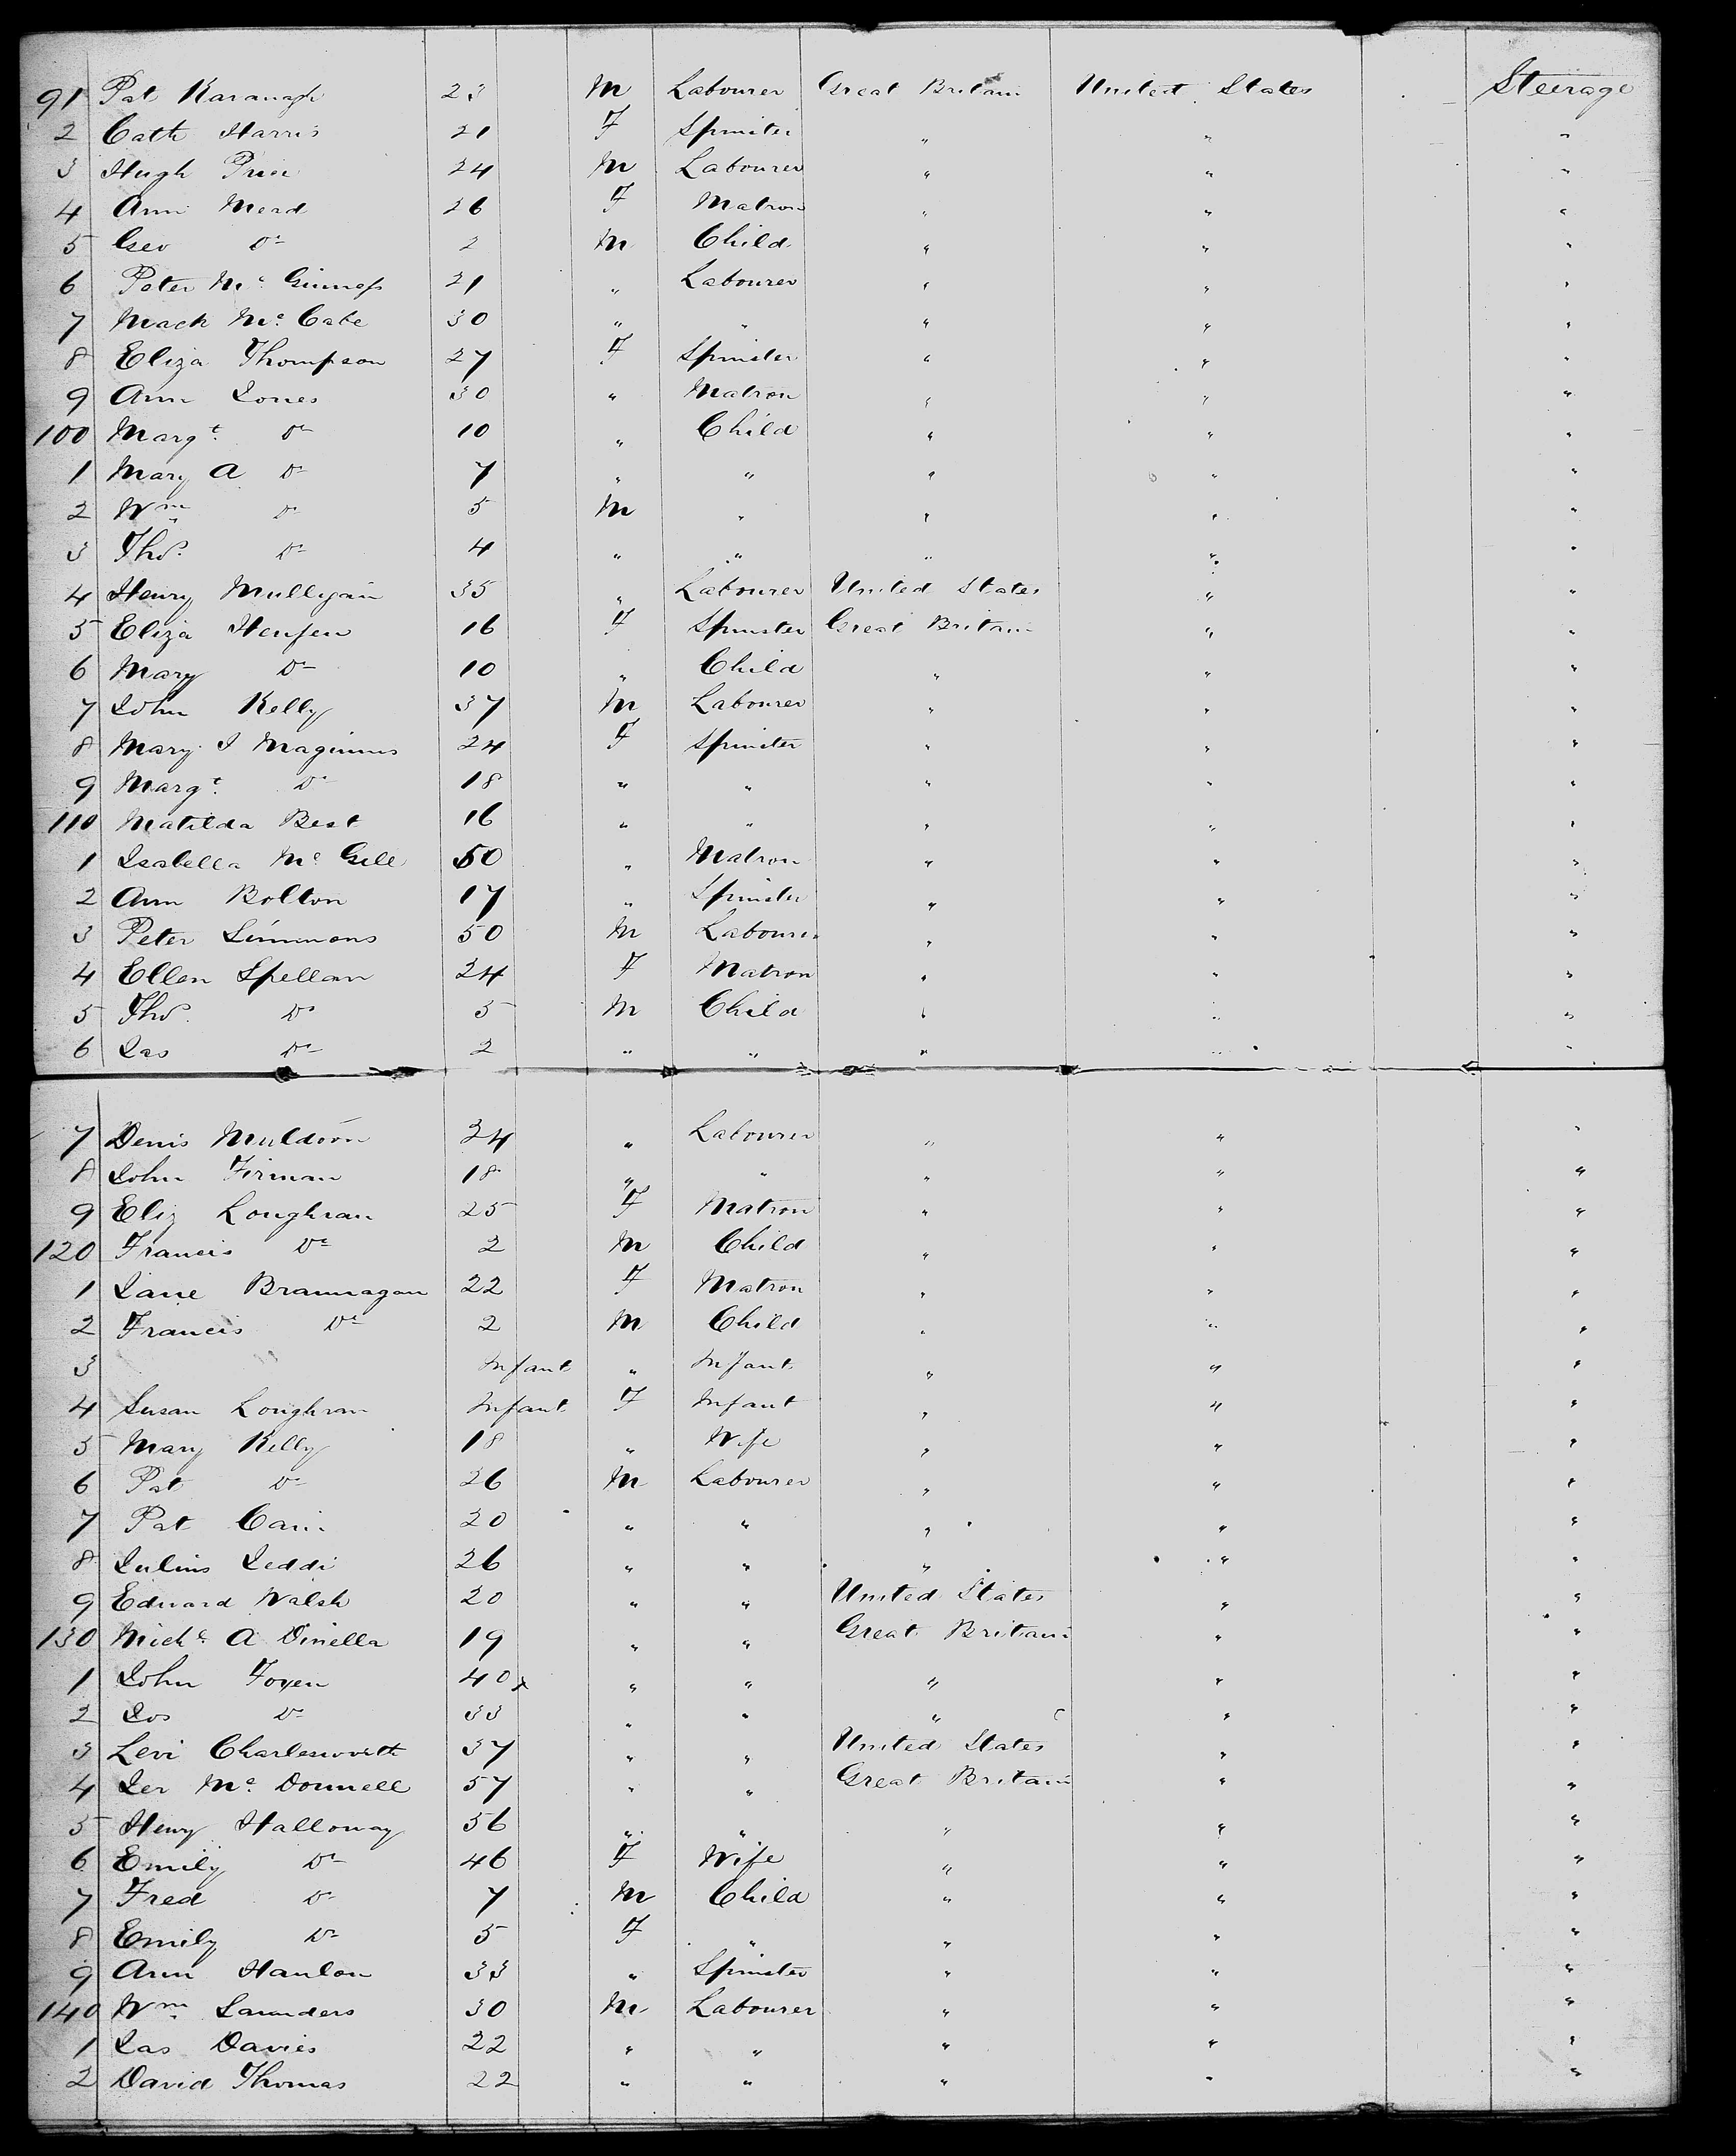 91 Pat Kavanagh 23 M Labourer Great Britain United States Steerage
2 Cath Harris 21 F Spinster " " "
3 Hugh 24 M Labourer " " "
4 Ann Mead 26 F Matron " " "
5 Geo Do 2 M Child " " "
6 Peter Mc Ginness 21 " Labourer " " "
7 Mack Mc Cabe 30 " " " " "
8 Eliza Thompson 27 F Spinster " " "
9 Ann Jones 30 " Matron " " "
100 Margt Do 10 " Child " " "
1 Mary A Do 7 " " " " "
2 Wm Do 5 M " " " "
3 Thos Do 4 " " " " "
4 Henry Mulligan 35 " Labourer United States " "
5 Eliza 16 F Spinster Great Britain " "
6 Mary Do 10 " Child " " "
7 John Kelly 37 M Labourer " " "
8 Mary J Maginnis 24 F Spinster " " "
9 Margt Do 18 " " " " "
110 Matilda Best 16 " " " " "
1 Isabella Mc Gill 50 " Matron " " "
2 Ann Bolton 17 " Spinster " " "
3 Peter Simmons 50 M Labourer " " "
4 Ellen Spellan 24 F Matron " " "
5 Thos Do 5 M Child " " "
6 Jas Do 2 " " " " "
7 Denis Muldoon 24 " Labourer " " "
8 John Firman 18 " " " " "
9 Eliz Loughran 25 F Matron " " "
120 Francis Do 2 M Child " " "
1 Jane Brannagan 22 F Matron " " "
2 Francis Do 2 M Child " " "
3 Infant " Infant " " "
4 Susan Loughran Infant F Infant " " "
5 Mary Kelly 18 " Wife " " "
6 Pat Do 26 M Labourer " " "
7 Pat Cain 20 " " " " "
8 Julius Jeddi 26 " " " " "
9 Edward Walsh 20 " " United States " "
130 Michl A Dinella 19 " " Great Britain " "
1 John Foyen 40 x " " " " "
2 Jos Do 33 " " " " "
3 Levi Charlesworth 37 " " United States " "
4 Jer Mc Donnell 57 " " Great Britain " "
5 Henry Halloway 56 " " " " "
6 Emily Do 46 F Wife " " "
7 Fred Do 7 M Child " " "
8 Emily Do 5 F " " " "
9 Ann Hanlon 33 " Spinster " " "
140 Wm Saunders 30 M Labourer " " "
1 Jas Davies 22 " " " " "
2 David Thomas 22 " " " " "